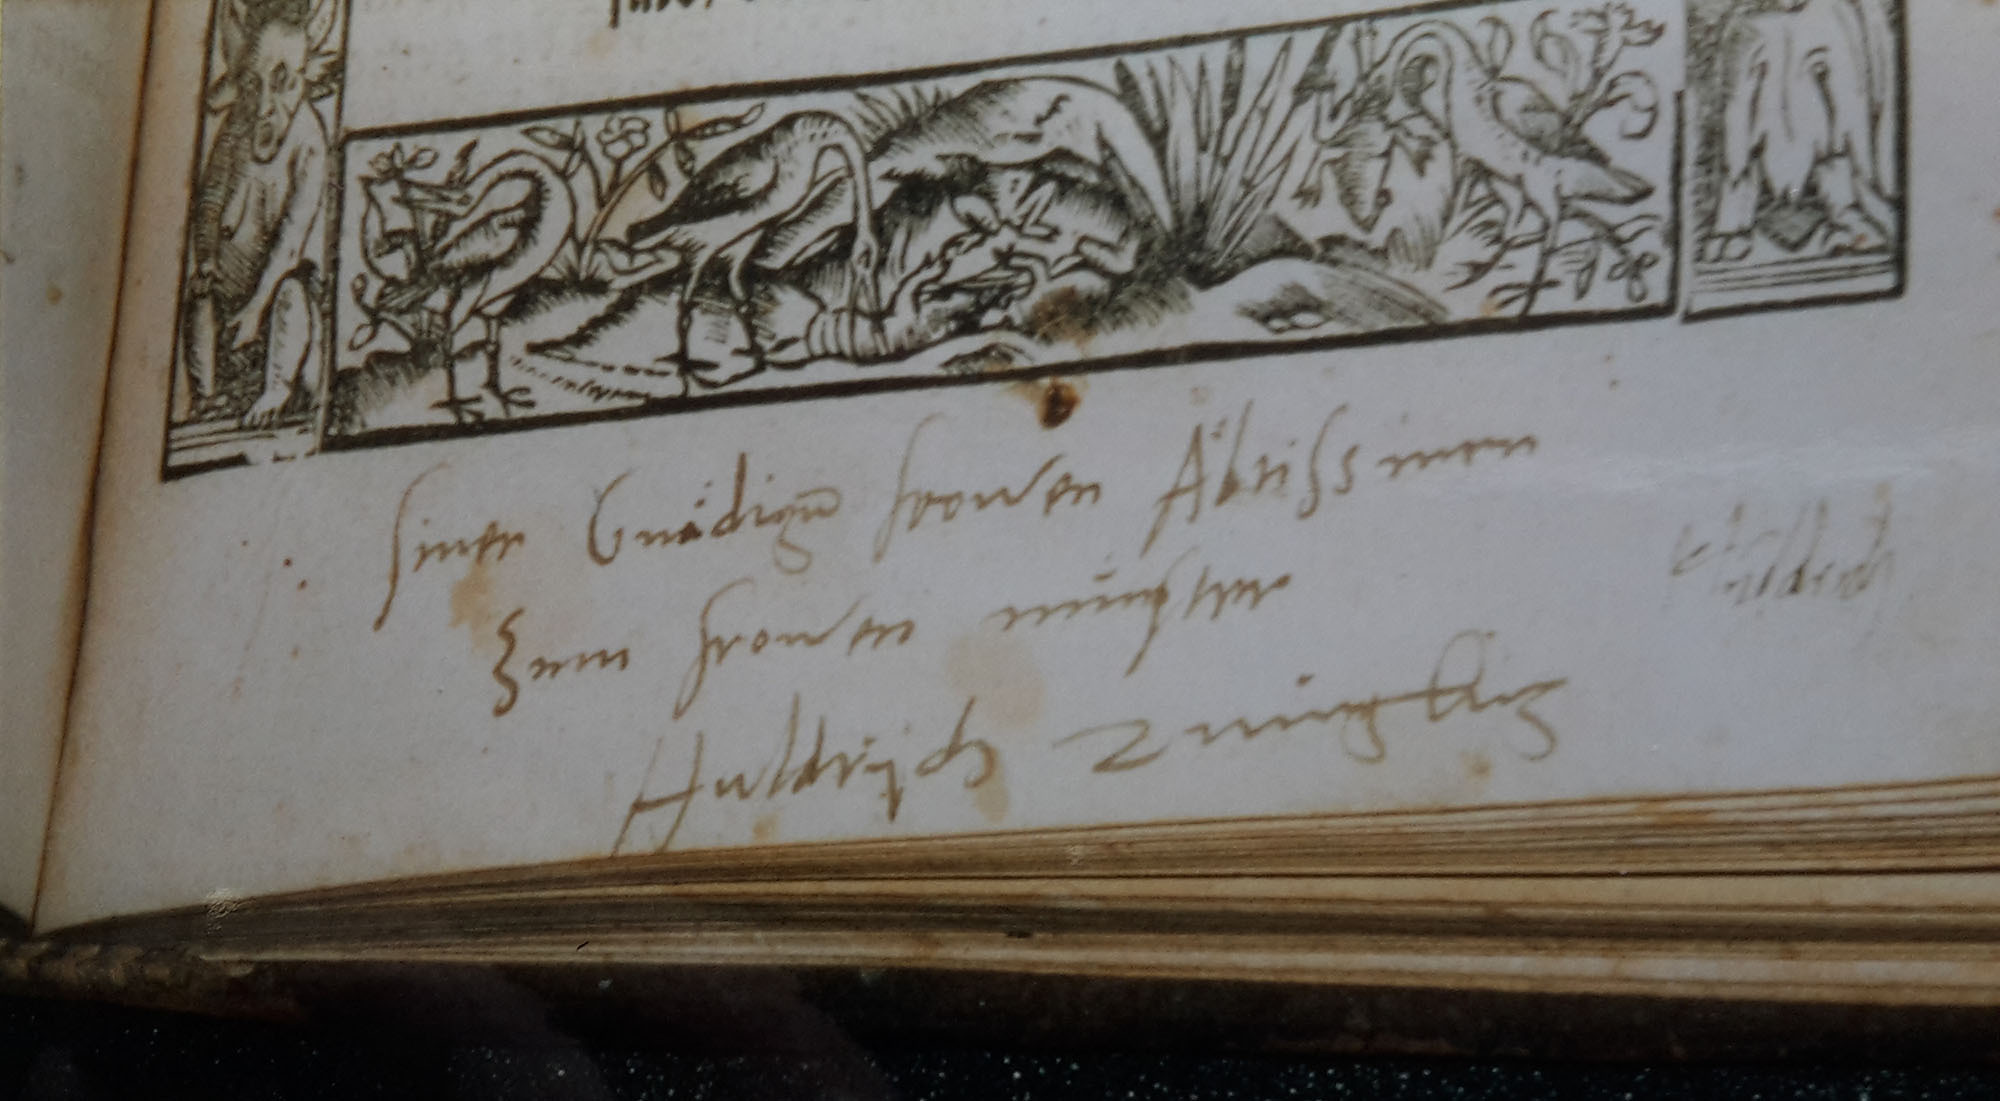 siner Gnädigē frowen Äbtissinnen
Zum frowen münster
Huldrych Zuingliʒ